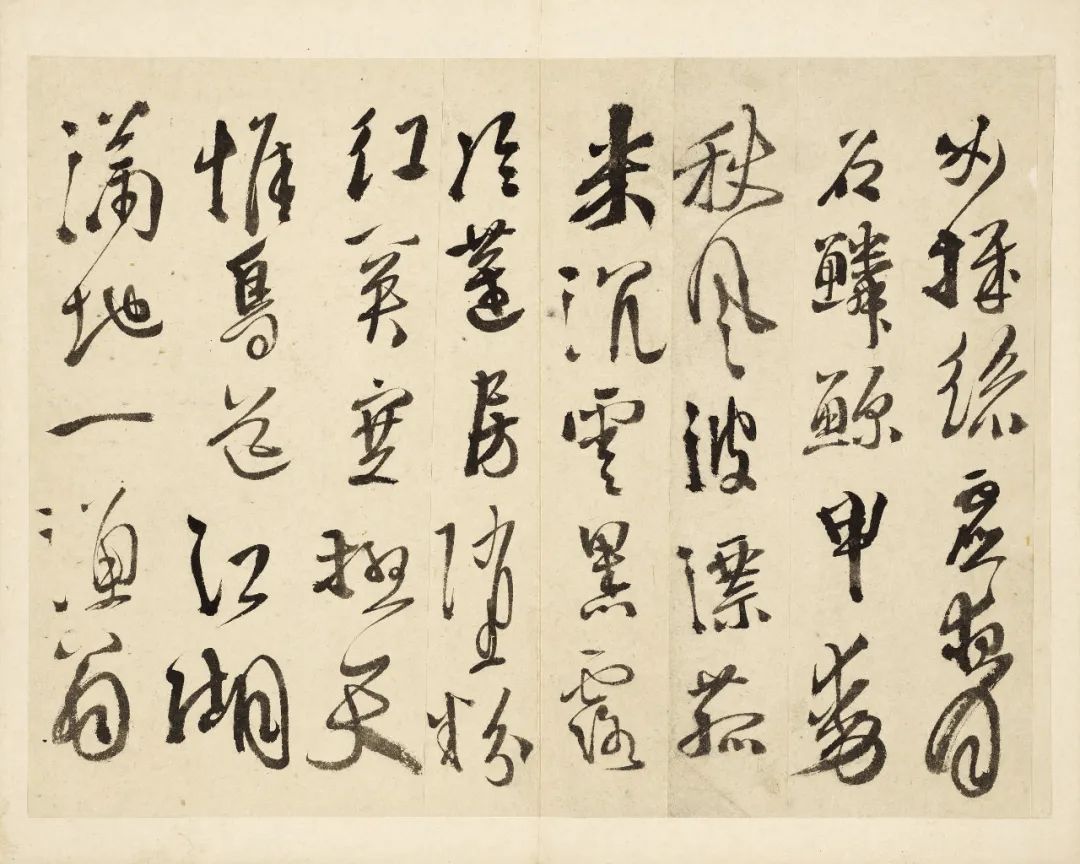 女機絲虛夜月
石鱗鯨甲動
秋風波漂菰
米沉雲黑露
冷蓮房墮粉
紅關塞極天
惟鳥道江湖
滿地一漁翁